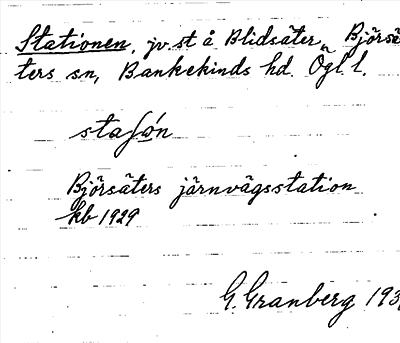 Stationen, jv.st å Blidsäter, Björsä
ters sn, Bankekinds hd. Ögl.l.
staʃὼn
Björsäters järnvägsstation
kb 1929
G. Granberg 193